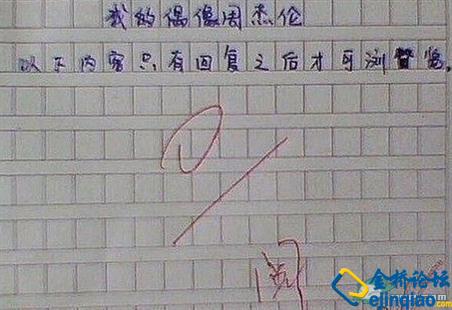 我的偶像周杰伦
以下内容只有回复之后才可浏览。
阅
金桥论坛
ejinqiao.com